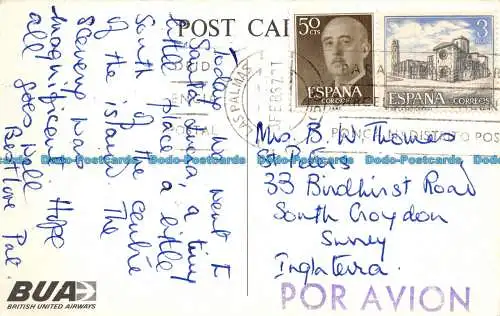 POST CAR
Today we went to
Santa Lucia, a tiny
little place a little
South of the centre
of the island. The
Scenery was
magnificent. Hope
all goes well
Best love Pat.
BUA
BRITISH UNITED AIRWAYS
50
CTS
ESPAÑA
CORREOS
3
ESPAÑA
CORREOS
LAS PALMAS
FEB 67
PONGA EL DISTRITO POSTAL
Mrs. B. W. Thomas
St Peters
33 Birdhurst Road
South Croydon
Surrey
Inglaterra.
POR AVION
Dodo-Postcards Dodo-Postcards Dodo-Postcards Dodo-Postcards